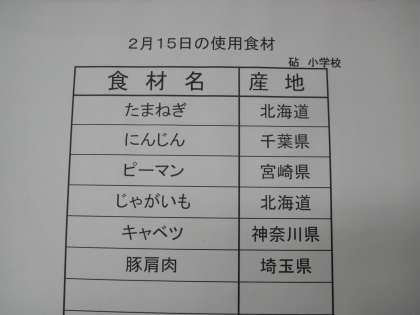 2月15日の使用食材
砧 小学校
食材名 産地
たまねぎ 北海道
にんじん 千葉県
ピーマン 宮崎県
じゃがいも 北海道
キャベツ 神奈川県
豚肩肉 埼玉県